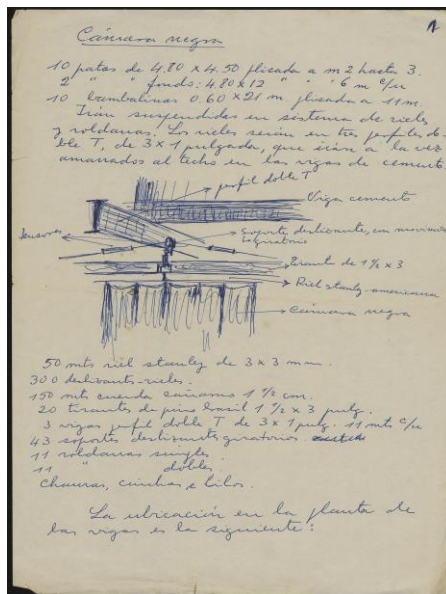 1
Cámara negra
10 patas de 4.80 x 4.50 plisada a m 2 hasta 3.
2 " " fondo: 4.80 x 12 " " 6 m c/u
10 bambalinas 0.60 x 21 m plisada a 11 m.
Irán suspendidas en sistema de rieles
y roldanas. Los rieles serán en tres perfiles do-
ble T, de 3 x 1 pulgada, que irán a la vez
amarrados al techo en las vigas de cemento.
perfil doble T
Viga cemento
Tensores
Soporte deslizante, con movimiento
giratorio
Tirante de 1 1/2 x 3
Riel stanley-americano
Cámara negra
50 mts riel stanley de 3 x 3 mm.
300 deslizants-rieles.
150 mts cuerda cáñamo 1 1/2 cm.
20 tirantes de pino brasil 1 1/2 x 3 pulg.
3 vigas perfil doble T de 3 x 1 pulg. 11 mts c/u
43 soportes deslizants giratorios
11 roldanas simples
11 " dobles.
cinchas e hilos.
La ubicación en la planta de
las vigas es la siguiente: